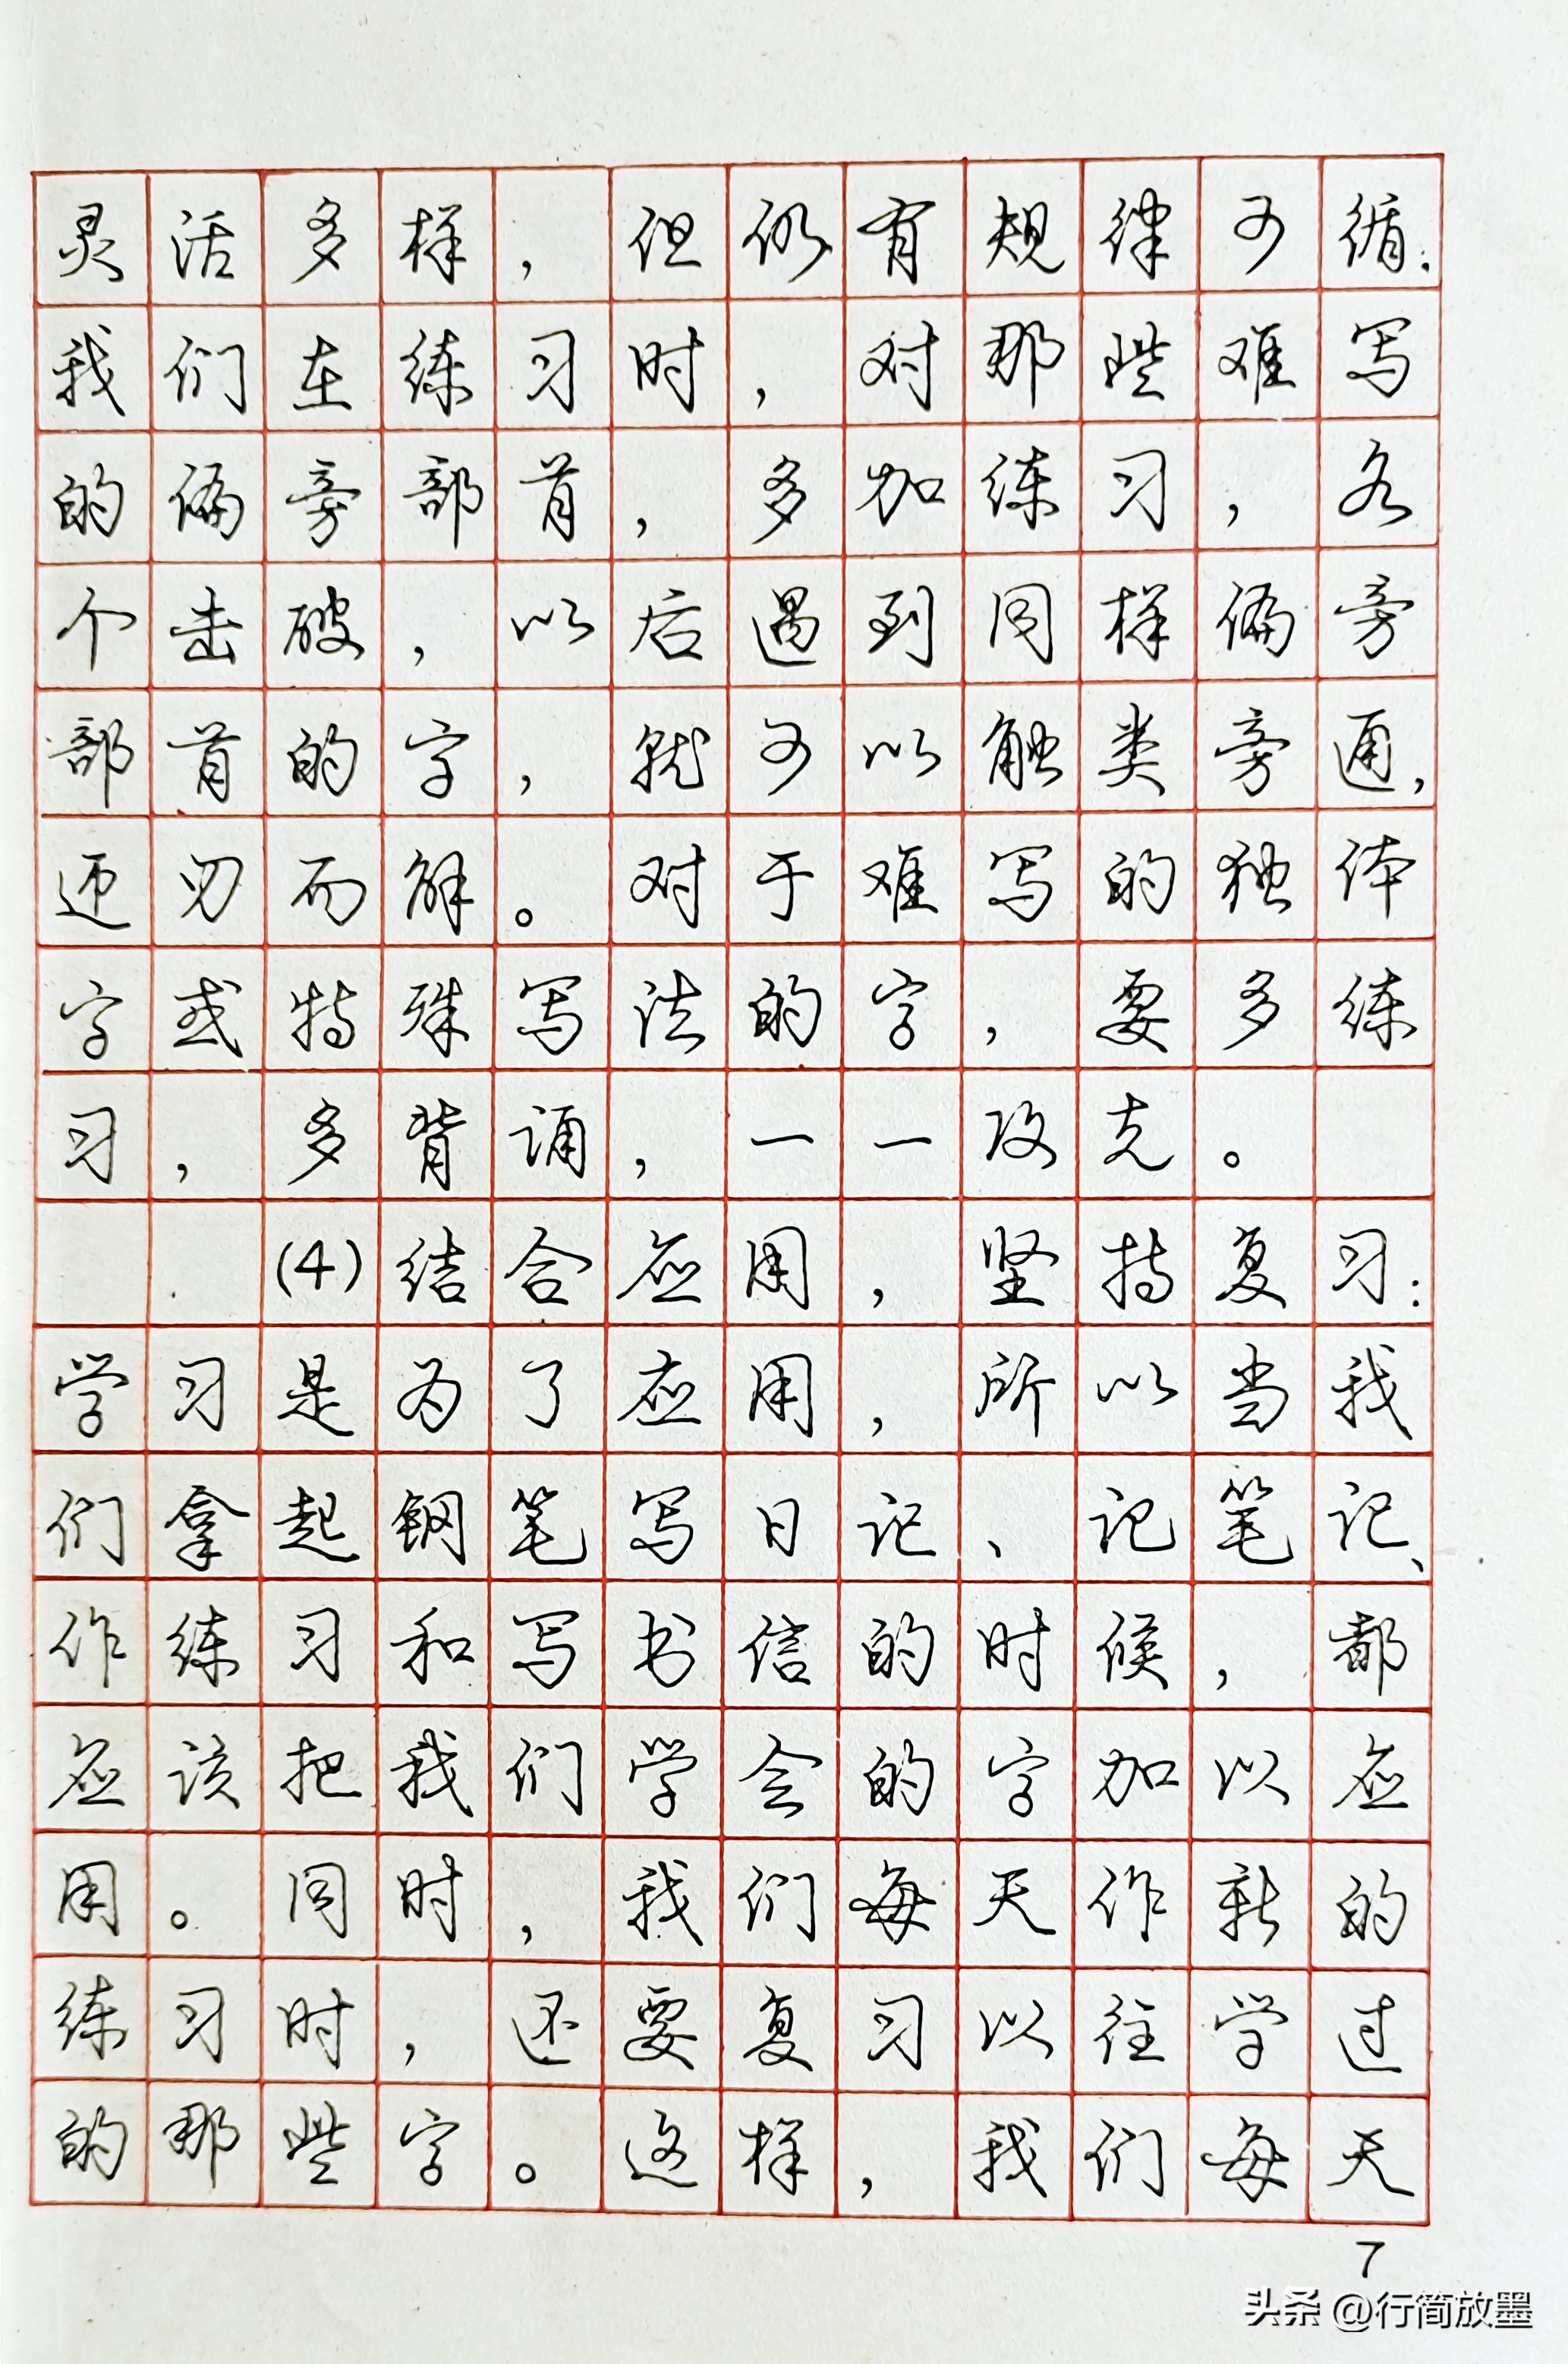 灵活多样，但仍有规律可循.
我们在练习时，对那些难写
的偏旁部首，多加练习，各
个击破，以后遇到同样偏旁
部首的字，就可以触类旁通，
迎刃而解。对于难写的独体
字或特殊写法的字，要多练
习，多背诵，一一攻克。
(4)结合应用，坚持复习：
学习是为了应用，所以当我
们拿起钢笔写日记、记笔记、
作练习和写书信的时候，都
应该把我们学会的字加以应
用。同时，我们每天作新的
练习时，还要复习以往学过
的那些字。这样，我们每天
7
头条 @行简放墨